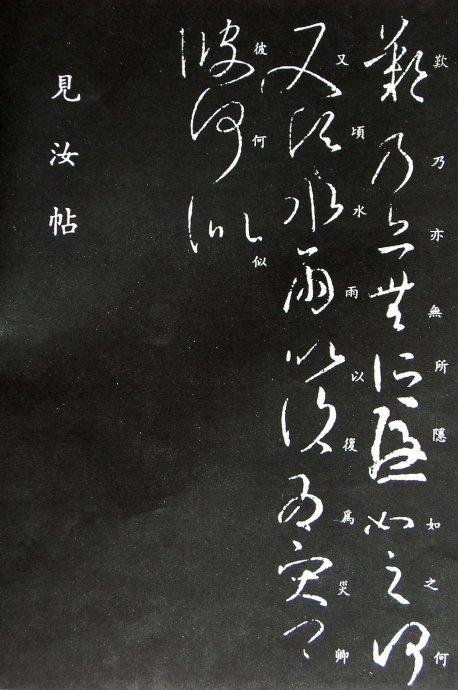 歎乃亦無所隱如之何
又頃水雨以復爲災卿
彼何似
見汝帖